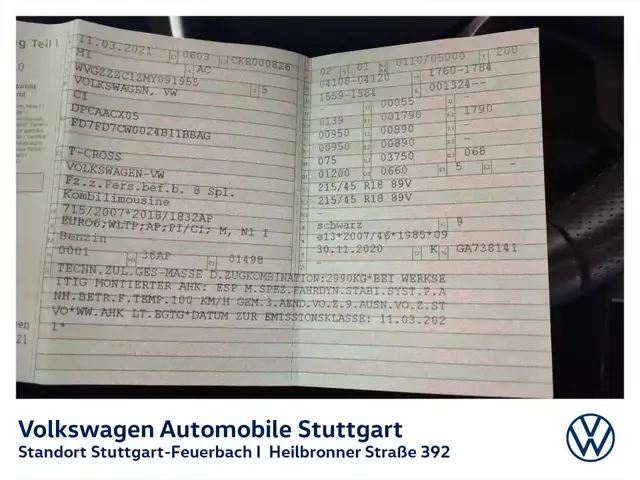 ng Teil I
11.03.2021 0603 CKR000826
M1 AC
WVGZZZC1ZMY091955 5
VOLKSWAGEN, VW
C1
DPCAACX05
FD7FD7CW0024BI1BBAG
T-CROSS
VOLKSWAGEN-VW
Fz.z.Pers.bef.b. 8 Spl.
Kombilimousine
715/2007*2018/1832AP
EURO6;WLTP;AP;PI/CI; M, N1 I
Benzin
0001 36AP 01498
02 01 0110/05000 200
04108-04120 1760-1784
1559-1584 001324--
00055 -
0139 001790 1790
00950 00890 -
00950 00890 -
075 03750 068
01200 0660 5 -
215/45 R18 89V
215/45 R18 89V
-
schwarz 9
e13*2007/46*1985*09
30.11.2020 K GA738141
TECHN.ZUL.GES-MASSE D.ZUGKOMBINATION:2990KG*BEI WERKSE
ITIG MONTIERTER AHK: ESP M.SPEZ.FAHRDYN.STABI.SYST.F.A
NH.BETR.F.TEMP.100 KM/H GEM.3.AEND.VO.Z.9.AUSN.VO.Z.ST
VO*WW.AHK LT.EGTG*DATUM ZUR EMISSIONSKLASSE: 11.03.202
1*
Volkswagen Automobile Stuttgart
Standort Stuttgart-Feuerbach I Heilbronner Straße 392